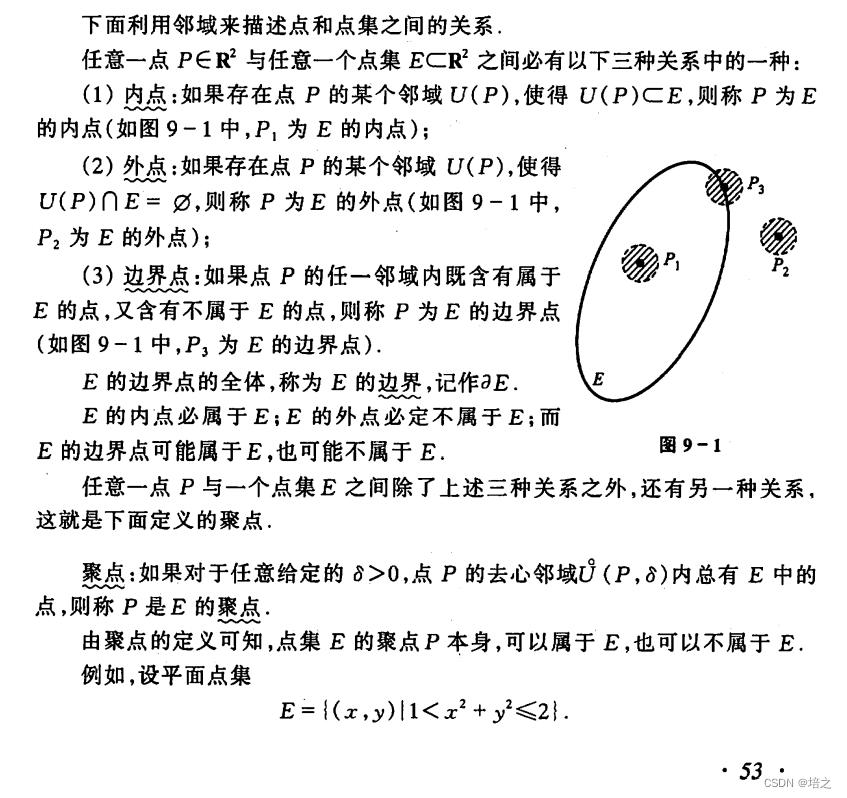 下面利用邻域来描述点和点集之间的关系.
任意一点 P∈R² 与任意一个点集 E⊂R² 之间必有以下三种关系中的一种:
(1) 内点:如果存在点 P 的某个邻域 U(P),使得 U(P)⊂E,则称 P 为 E
的内点(如图 9-1 中,P₁ 为 E 的内点);
(2) 外点:如果存在点 P 的某个邻域 U(P),使得
U(P)∩E = ∅,则称 P 为 E 的外点(如图 9-1 中,
P₂ 为 E 的外点);
(3) 边界点:如果点 P 的任一邻域内既含有属于
E 的点,又含有不属于 E 的点,则称 P 为 E 的边界点
(如图 9-1 中,P₃ 为 E 的边界点).
E 的边界点的全体,称为 E 的边界,记作∂E.
E 的内点必属于 E;E 的外点必定不属于 E;而
E 的边界点可能属于 E,也可能不属于 E.
P₃
P₁
P₂
E
图 9-1
任意一点 P 与一个点集 E 之间除了上述三种关系之外,还有另一种关系,
这就是下面定义的聚点.
聚点:如果对于任意给定的 δ>0,点 P 的去心邻域Ů(P,δ)内总有 E 中的
点,则称 P 是 E 的聚点.
由聚点的定义可知,点集 E 的聚点 P 本身,可以属于 E,也可以不属于 E.
例如,设平面点集
E = {(x,y)|1<x² + y²≤2}.
· 53 ·
CSDN @培之